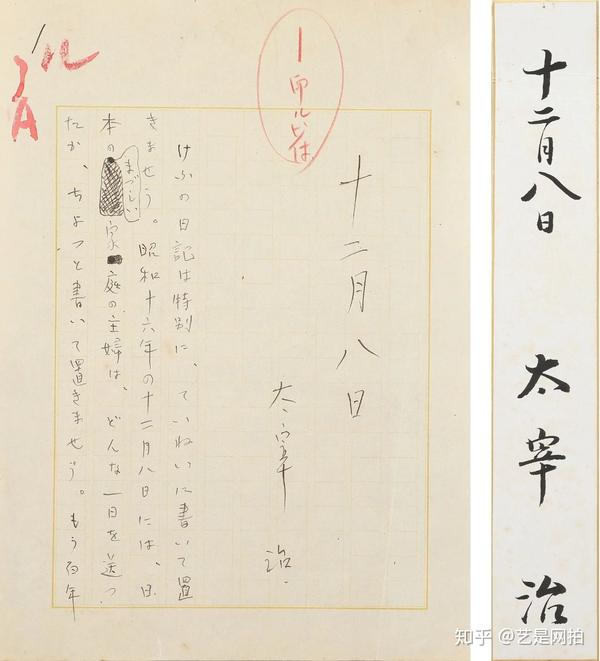 十二月八日
太宰治
けふの日記は特別に、ていねいに書いて置
きませう。昭和十六年の十二月八日には、日
本のまづしい家庭の主婦は、どんな一日を送つ
たか、ちよつと書いて置きませう。もう百年
A
十二月八日 太宰治
知乎 @艺是网拍